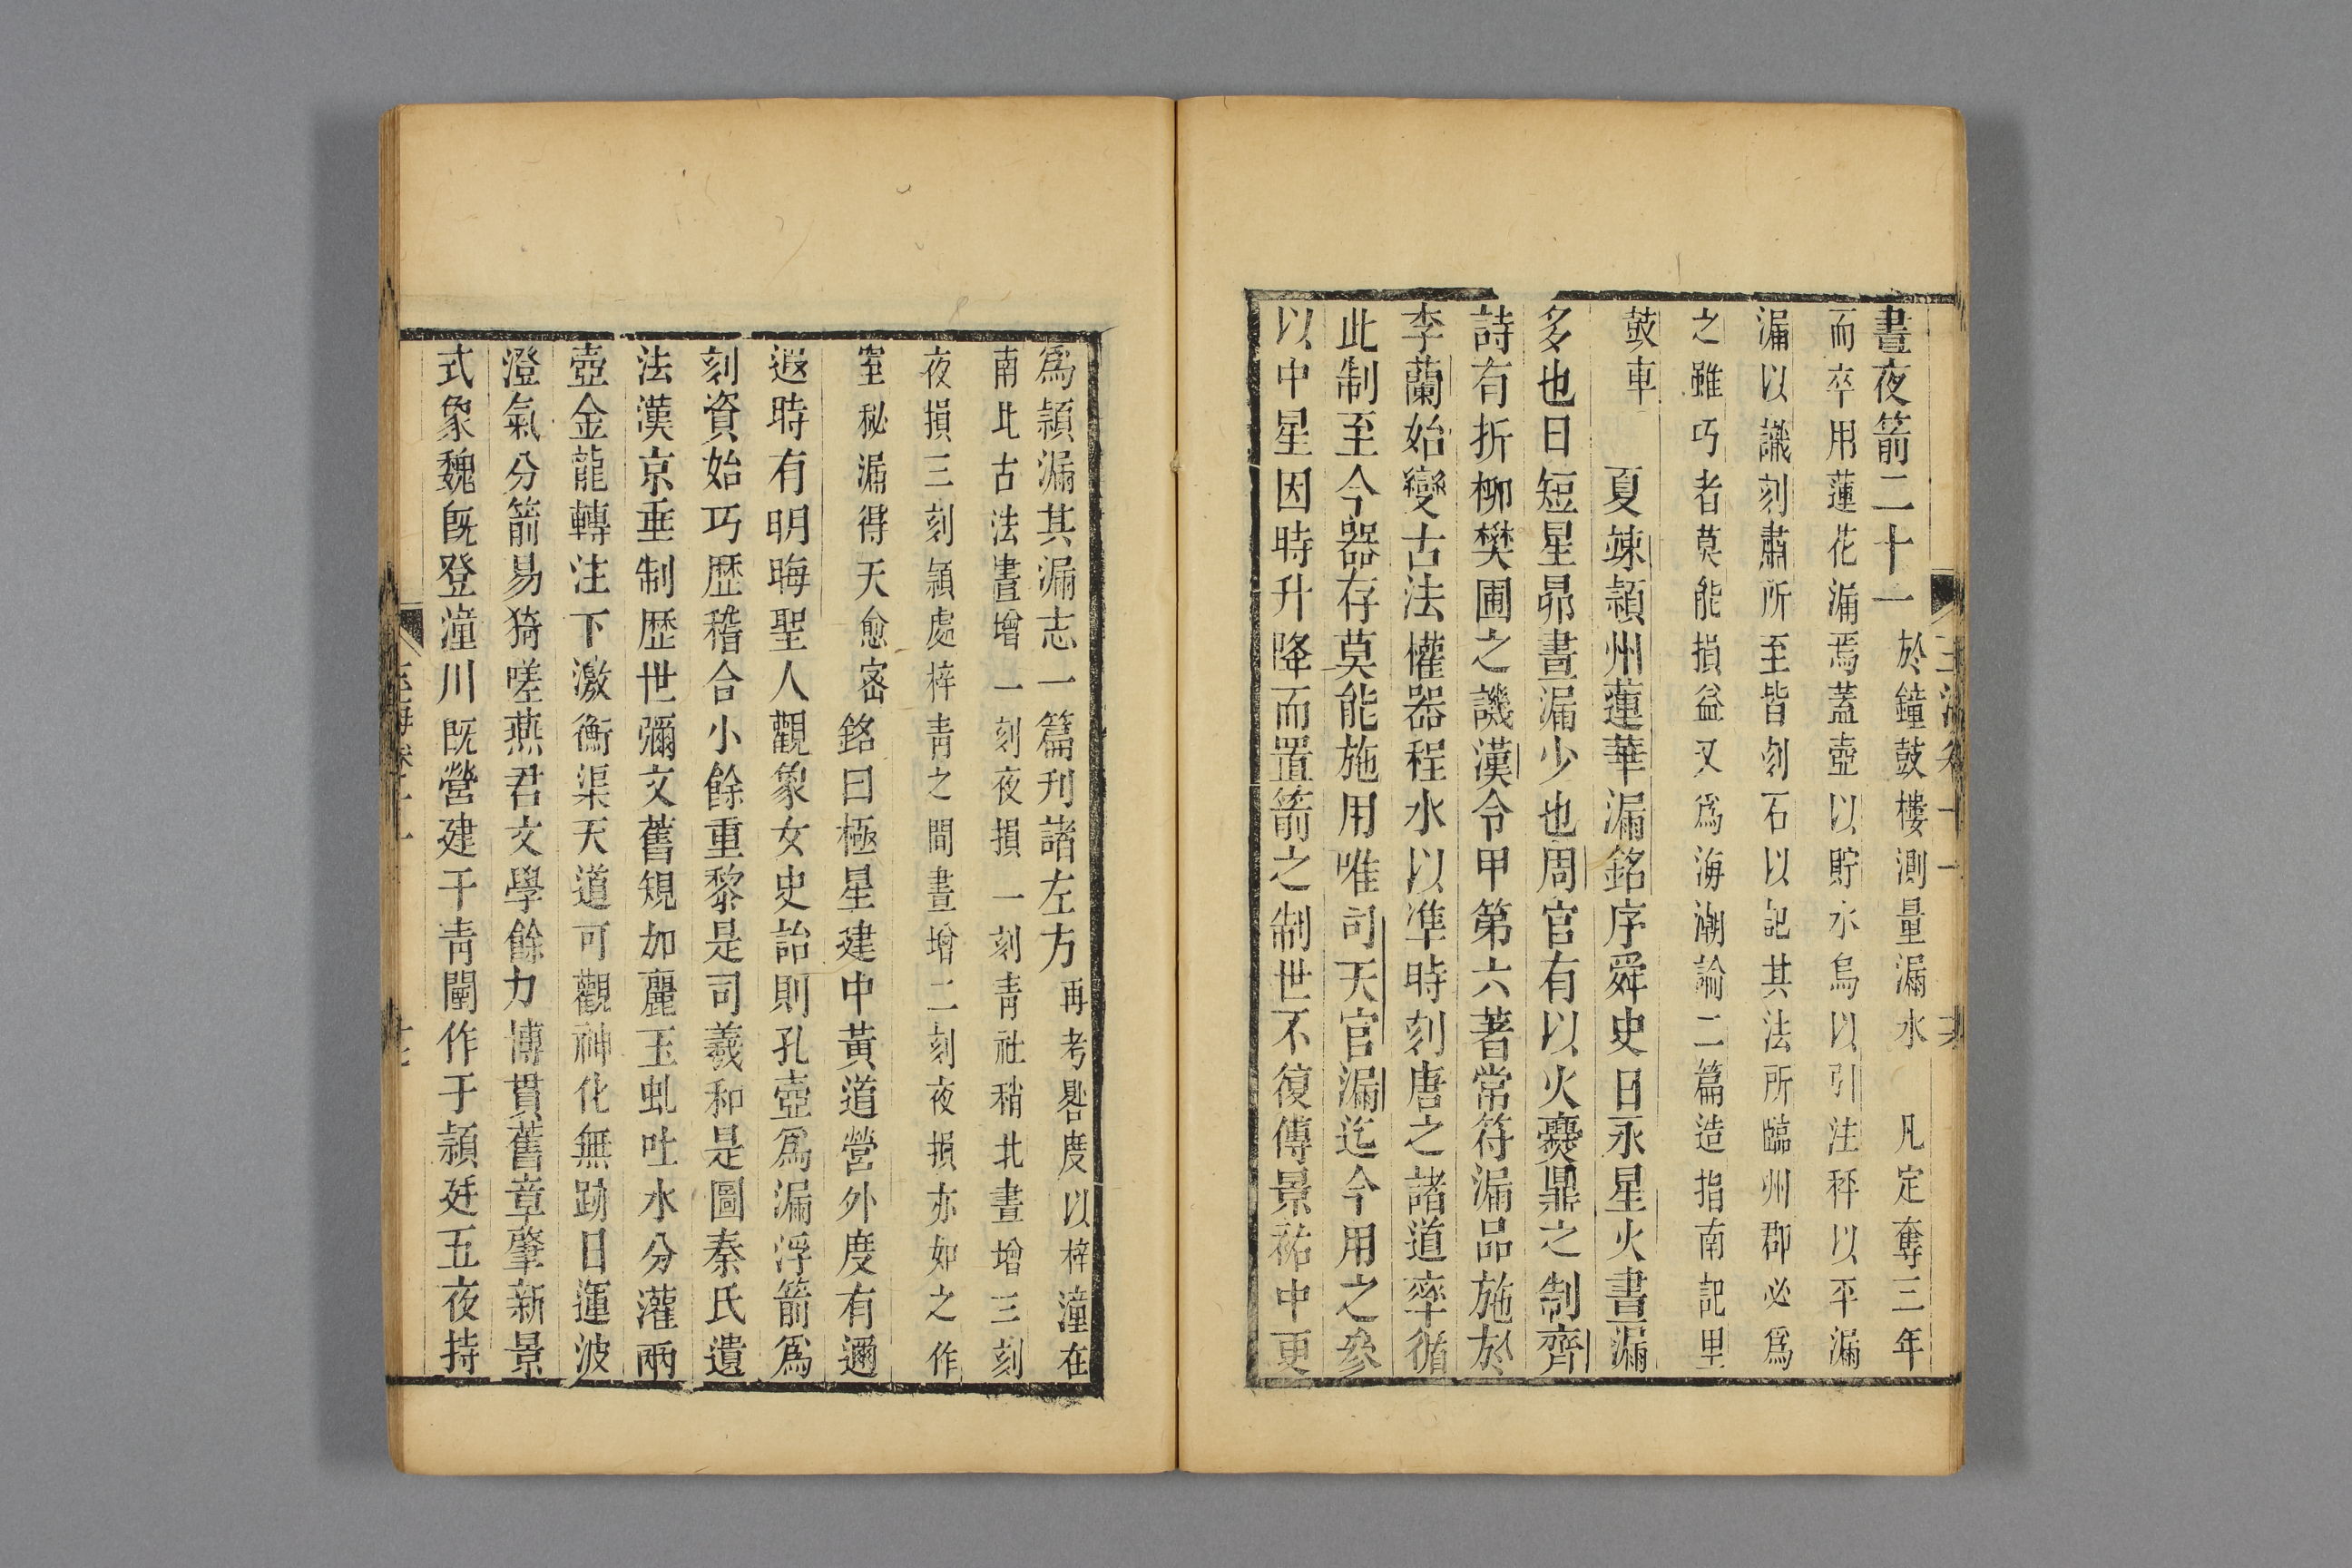 晝夜箭二十一於鐘鼓樓測量漏水　凡定奪三年
而卒用蓮花漏焉蓋壺以貯水烏以引注秤以平漏
漏以識刻肅所至皆刻石以記其法所臨州郡必爲
之雖巧者莫能損益又爲海潮論二篇造指南記里
鼓車
夏竦潁州蓮華漏銘序舜史日永星火晝漏
多也日短星昴晝漏少也周官有以火爨鼎之制齊
詩有折柳樊圃之譏漢令甲第六著常符漏品施於
李蘭始變古法權器程水以準時刻唐之諸道率循
此制至今器存莫能施用唯司天官漏迄今用之參
以中星因時升降而置箭之制世不復傳景祐中更
爲潁漏其漏志一篇刋諸左方再考晷度以梓潼在
南北古法晝增一刻夜損一刻青社稍北晝增三刻
夜損三刻潁處梓青之間晝增二刻夜損亦如之作
室秘漏得天愈密
銘曰極星建中黃道營外度有邇
遐時有明晦聖人觀象女史詒則孔壺爲漏浮箭爲
刻資始巧歷稽合小餘重黎是司羲和是圖秦氏遺
法漢京垂制歷世彌文舊規加麗玉虬吐水分灌兩
壺金龍轉注下激衡渠天道可觀神化無跡日運波
澄氣分箭易猗嗟燕君文學餘力博貫舊章肇新景
式象魏旣登潼川旣營建于靑闈作于潁廷五夜持